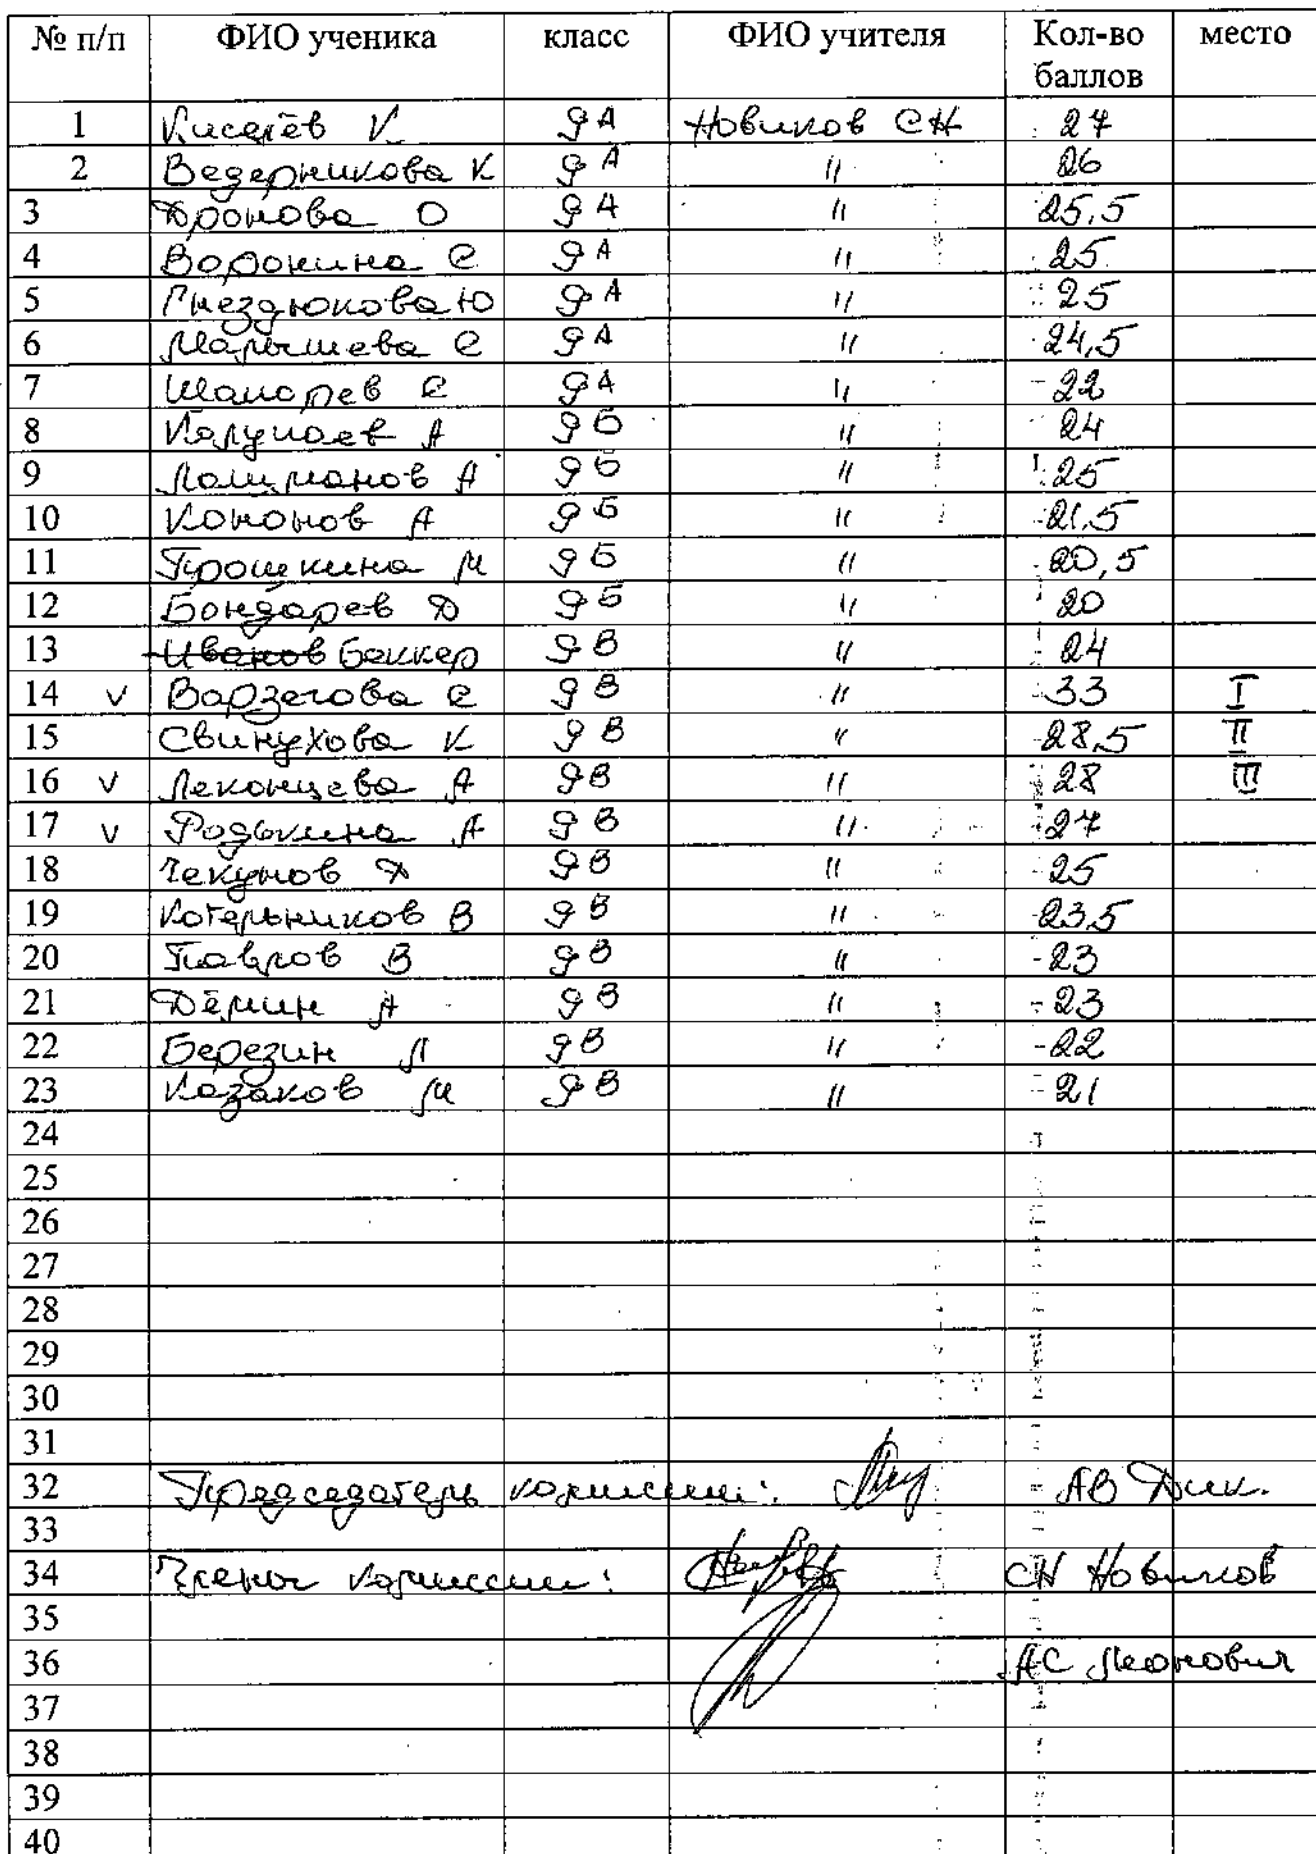 № п/п ФИО ученика класс ФИО учителя Кол-во баллов место
1 Киселёв К 9А Новиков СН 27
2 Ведерникова К 9А " 26
3 Дронова О 9А " 25,5
4 Воронина Е 9А " 25
5 Гнездюкова Ю 9А " 25
6 Малышева Е 9А " 24,5
7 Шапорев Е 9А " 22
8 Калупаев А 9Б " 24
9 Лашманов А 9Б " 25
10 Кононов А 9Б " 21,5
11 Прошкина М 9Б " 20,5
12 Бондарев Д 9Б " 20
13 Иванов Беккер 9В " 24
14 v Варзегова Е 9В " 33 I
15 Свинухова К 9В " 28,5 II
16 v Леконцева А 9В " 28 III
17 v Родькина А 9В " 27
18 Чекунов Д 9В " 25
19 Котельников В 9В " 23,5
20 Павлов В 9В " 23
21 Дёмин А 9В " 23
22 Березин Л 9В " 22
23 Казаков М 9В " 21
24
25
26
27
28
29
30
31
32 Председатель комиссии: АВ Дик.
33
34 Члены комиссии: СН Новиков
35
36 АС Леонович
37
38
39
40